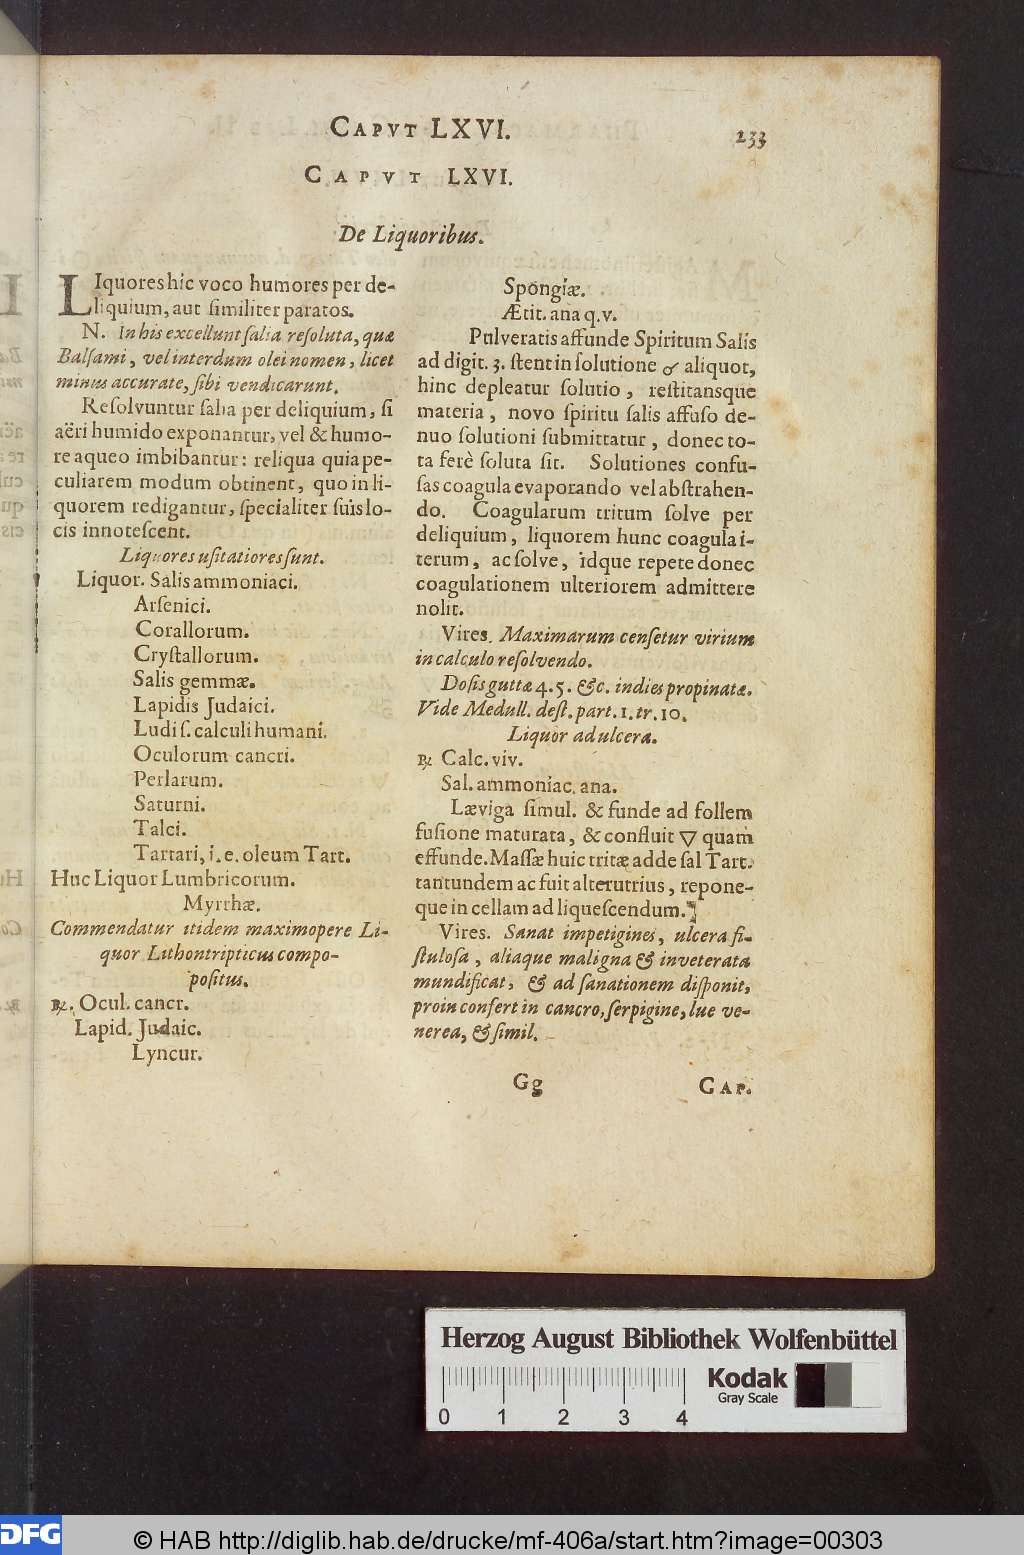 CAPVT LXVI.
233
CAPVT LXVI.
De Liquoribus.
LIquores hic voco humores per de-
liquium, aut similiter paratos.
N. In his excellunt salia resoluta, quæ
Balsami, vel interdum olei nomen, licet
minus accurate, sibi vendicarunt.
Resolvuntur salia per deliquium, si
aëri humido exponantur, vel & humo-
re aqueo imbibantur: reliqua quia pe-
culiarem modum obtinent, quo in li-
quorem redigantur, specialiter suis lo-
cis innotescent.
Liquores usitatiores sunt.
Liquor. Salis ammoniaci.
Arsenici.
Corallorum.
Crystallorum.
Salis gemmæ.
Lapidis Judaici.
Ludi s. calculi humani.
Oculorum cancri.
Perlarum.
Saturni.
Talci.
Tartari, i. e. oleum Tart.
Huc Liquor Lumbricorum.
Myrrhæ.
Commendatur itidem maximopere Li-
quor Lithontripticus compo-
positus.
℞. Ocul. cancr.
Lapid. Judaic.
Lyncur.
Spongiæ.
Ætit. ana q. v.
Pulveratis affunde Spiritum Salis
ad digit. 3. stent in solutione aliquot,
hinc depleatur solutio, restitansque
materia, novo spiritu salis affuso de-
nuo solutioni submittatur, donec to-
ta ferè soluta sit. Solutiones confu-
sas coagula evaporando vel abstrahen-
do. Coagulatum tritum solve per
deliquium, liquorem hunc coagula i-
terum, ac solve, idque repete donec
coagulationem ulteriorem admittere
nolit.
Vires. Maximarum censetur virium
in calculo resolvendo.
Dosis guttæ 4. 5. &c. indies propinatæ.
Vide Medull. dest. part. 1. tr. 10.
Liquor ad ulcera.
℞ Calc. viv.
Sal. ammoniac. ana.
Læviga simul. & funde ad follem
fusione maturata, & confluit ▽ quam
effunde. Massæ huic tritæ adde sal Tart.
tantundem ac fuit alterutrius, repone-
que in cellam ad liquescendum.
Vires. Sanat impetigines, ulcera fi-
stulosa, aliaque maligna & inveterata
mundificat, & ad sanationem disponit,
proin confert in cancro, serpigine, lue ve-
nerea, & simil.
Gg
CAP.
Herzog August Bibliothek Wolfenbüttel
0 1 2 3 4
Kodak
Gray Scale
DFG
© HAB http://diglib.hab.de/drucke/mf-406a/start.htm?image=00303